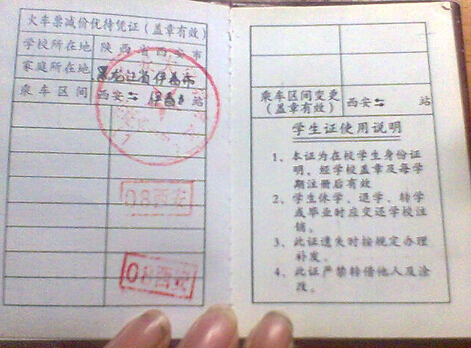 火车票减价优待凭证(盖章有效)
学校所在地 陕西省西安市
家庭所在地 黑龙江省伊春市
乘车区间 西安⇆伊春 站
08西安
08西安
乘车区间变更(盖章有效) 西安⇆ 站
学生证使用说明
1、本证为在校学生身份证
明。经学校盖章及每学
期注册后有效
2、学生休学、退学、转学
或毕业时应交还学校注
销。
3、此证遗失时按规定办理
补发。
4、此证严禁转借他人及涂
改。